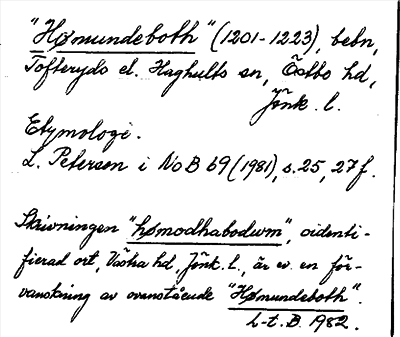 "Hømundeboth" (1201-1223), bebn,
Tofteryds el. Haghults sn, Östbo hd,
Jönk. l.
Etymologi.
L. Petersen i NoB 69 (1981), s. 25, 27 f.
Skrivningen "hømodhabodum", oidenti-
fierad ort, Västra hd, Jönk. l., är ev. en för-
vanskning av ovanstående "Hømundeboth".
L-t. B. 1982.